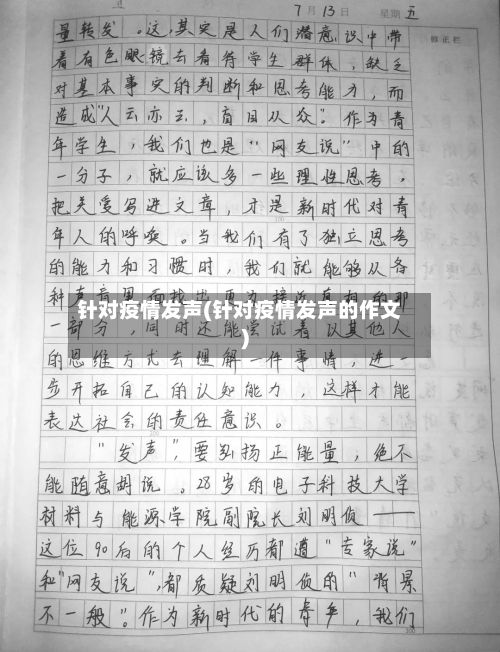 7月13日 星期五
修正栏
量转发。这,其实是人们潜意识中带
着有色眼镜去看待学生群体,缺乏
对基本事实的判断和思考能力,而
造成"人云亦云,盲目从众"。作为青
年学生,我们也是"网友说"中的
一分子,就应该多一些理性思考,
把关爱写进文章,才是新时代对青
年人的呼唤。当我们有了独立思考
的能力和习惯时,我们就能够从各
种声音里面
针对疫情发声(针对疫情发声的作文
)
一部分,同时还能尝试着以其他人
的思维方式去理解一件事情,进一
步开拓自己的认知能力,这样才能
表达社会的责任意识。
"发声",要弘扬正能量,绝不
能随意胡说。28岁的电子科技大学
材料与能源学院副院长刘明侦——
这位90后的个人经历都遭"专家说"
和"网友说",都质疑刘明侦的"背景
不一般"。作为新时代的青年,我们